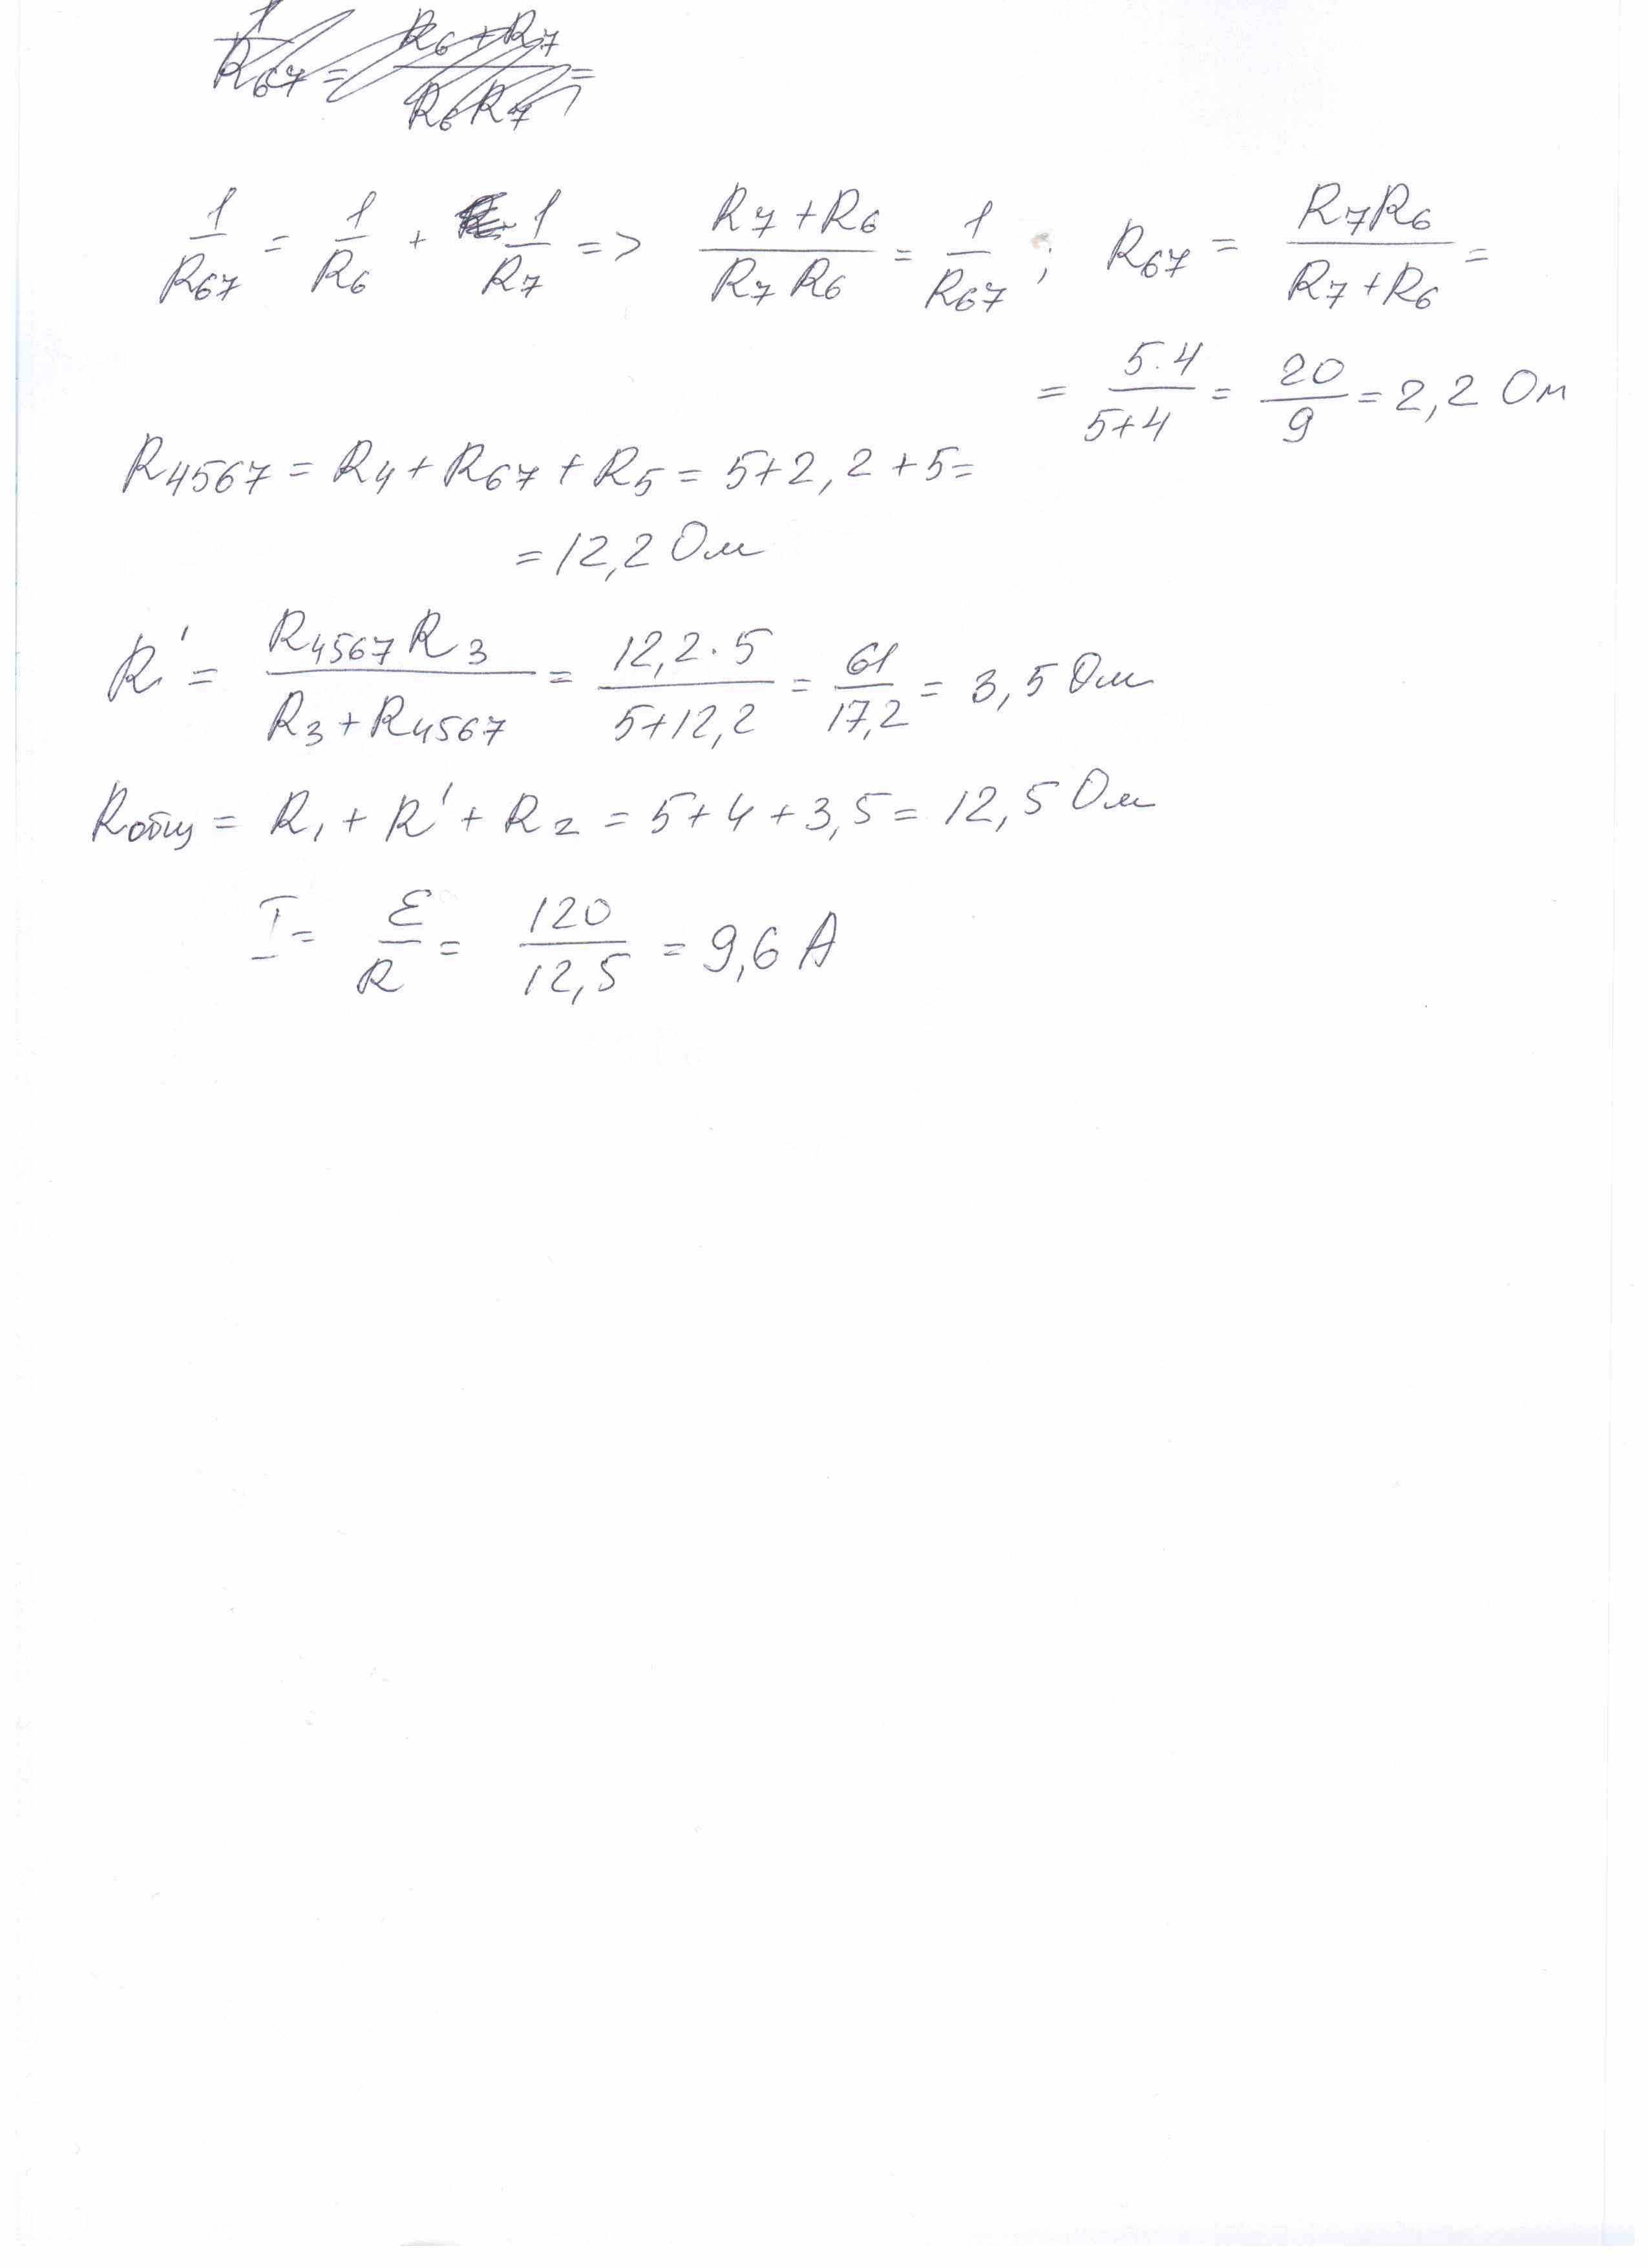 1/R67 = R6+R7/R6R7 =
1/R67 = 1/R6 + 1/R7 => R7+R6/R7R6 = 1/R67 ; R67 = R7R6/R7+R6 =
= 5·4/5+4 = 20/9 = 2,2 Ом
R4567 = R4 + R67 + R5 = 5+2,2+5=
= 12,2 Ом
R' = R4567R3/R3+R4567 = 12,2·5/5+12,2 = 61/17,2 = 3,5 Ом
Rобщ = R1 + R' + R2 = 5+4+3,5 = 12,5 Ом
I = ℰ/R = 120/12,5 = 9,6 А